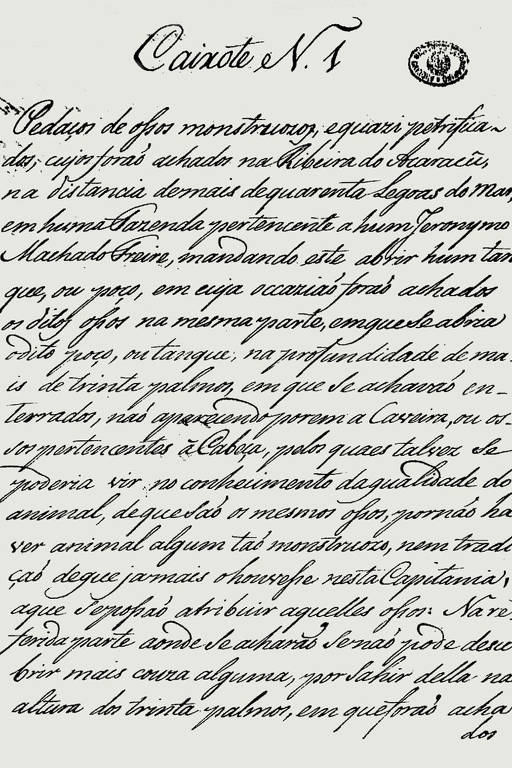 Caixote N. 1
Pedaços de ossos monstruozos, e quazi petrifica-
dos, cujos foraõ achados na Ribeira do Acaracũ,
na distancia de mais de quarenta Legoas do Mar,
em huma Fazenda pertencente a hum Jeronymo
Machado Freire, mandando este abrir hum tan
que, ou poço, em cuja occaziaõ foraõ achados
os ditos ossos na mesma parte, em que se abria
o dito poço, ou tanque, na profundidade de ma-
is de trinta palmos, em que se achavaõ en-
terrados, naõ aparecendo porem a Caveira, ou os-
sos pertencentes á Cabeça, pelos quaes talvez se
poderia vir no conhecimento da qualidade do
animal, de que saõ os mesmos ossos, por naõ ha
ver animal algum taõ monstruozo, nem tradi
çaõ de que jamais o houvesse nesta Capitania,
a que se possaõ atribuir aquelles ossos: Na re-
ferida parte aonde se acharaõ se naõ pode descu
brir mais couza alguma, por sahir della na
altura dos trinta palmos, em que foraõ acha
dos